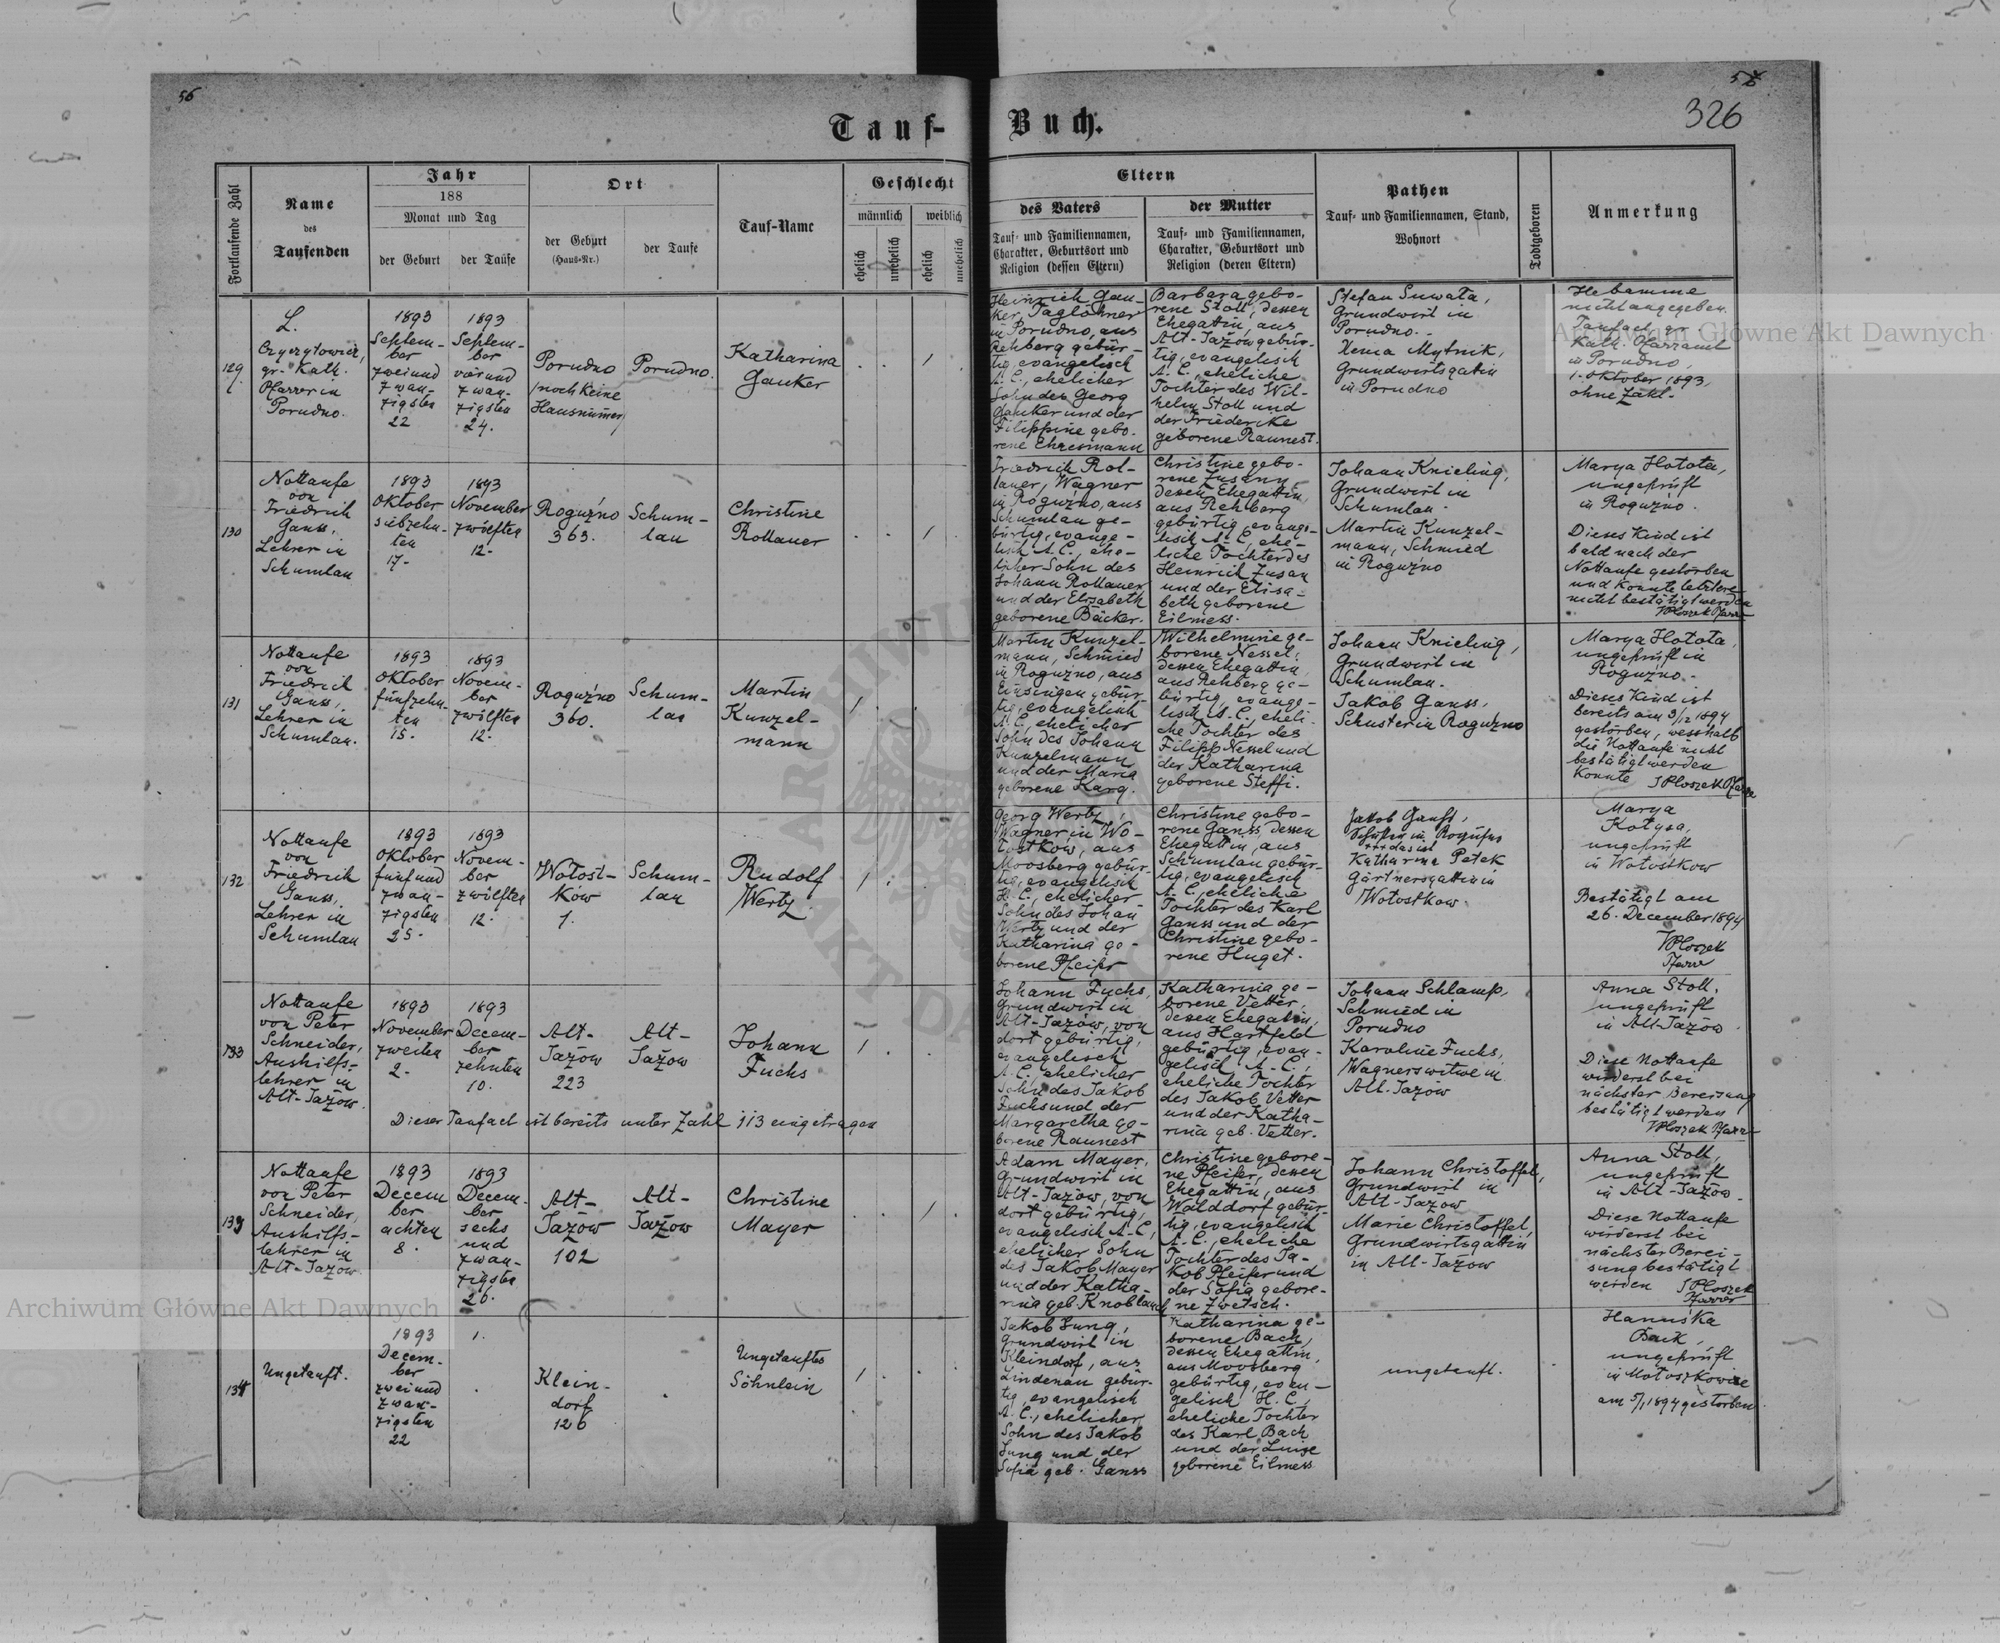 56
57
326
Tauf-Buch.
Fortlaufende Zahl
Name
des
Taufenden
Jahr
188
Monat und Tag
der Geburt
der Taufe
Ort
der Geburt
(Haus-Nr.)
der Taufe
Tauf-Name
Geschlecht
männlich
weiblich
ehelich
unehelich
ehelich
unehelich
Eltern
des Vaters
Tauf- und Familiennamen,
Charakter, Geburtsort und
Religion (dessen Eltern)
der Mutter
Tauf- und Familiennamen,
Charakter, Geburtsort und
Religion (deren Eltern)
Pathen
Tauf- und Familiennamen, Stand,
Wohnort
Todtgeboren
Anmerkung
129
L.
gr. Kath.
Pfarrer in
Porudno.
1893
Septem-
ber
zweiund
zwan-
zigsten
22
1893
Septem-
ber
vierund
zwan-
zigsten
24.
Porudno
/noch keine
Hausnummer/
Porudno.
Katharina
Gauker
1
Heinrich Gau-
ker, Taglöhner
in Porudno, aus
Rehberg gebür-
tig, evangelisch
A. C., ehelicher
Sohn des Georg
Gauker und der
Filippine gebo-
rene Ehresmann
Barbara gebo-
rene Stoll, dessen
Ehegattin, aus
Alt-Jazow gebür-
tig, evangelisch
A. C., eheliche
Tochter des Wil-
helm Stoll und
der Friedericke
geborene Raunest.
Stefan Suwała,
Grundwirt in
Porudno.-
Xenia Mytnik,
Grundwirtsgattin
in Porudno
Hebamme
nicht angegeben.
Taufact, gr.
Kath. Pfarramt
in Porudno,
1. Oktober 1893,
ohne Zahl.
130
Nottaufe
von
Friedrich
Ganss,
Lehrer in
Schumlau
1893
Oktober
siebzehn-
ten
17.
1893
November
zwölften
12.
Roguźno
363.
Schum-
lau
Christine
Rollauer
1
Friedrich Rol-
lauer, Wagner
in Roguźno, aus
Schumlau ge-
bürtig, evange-
lisch A. C., ehe-
licher Sohn des
Johann Rollauer
und der Elisabeth
geborene Bäcker.
Christine gebo-
rene Zusann,
dessen Ehegattin,
aus Rehberg
gebürtig, evange-
lisch A. C., ehe-
liche Tochter des
Heinrich Zusan
und der Elisa-
beth geborene
Eilmess.
Johann Knieling,
Grundwirt in
Schumlau.
Martin Kunzel-
mann, Schmied
in Roguźno
Marya Hołota,
ungeprüft
in Roguźno.
Dieses Kind ist
bald nach der
Nottaufe gestorben
und konnte letztere
nicht bestätigt werden
131
Nottaufe
von
Friedrich
Ganss,
Lehrer in
Schumlau.
1893
Oktober
fünfzehn-
ten
15.
1893
Novem-
ber
zwölften
12.
Roguźno
360.
Schum-
lau
Martin
Kunzel-
mann
1
Martin Kunzel-
mann, Schmied
in Roguźno, aus
Einsingen gebür-
tig, evangelisch
A. C., ehelicher
Sohn des Johann
Kunzelmann
und der Maria
geborene Karg.
Wilhelmine ge-
borene Nessel,
dessen Ehegattin,
aus Rehberg ge-
bürtig, evange-
lisch A. C., eheli-
che Tochter des
Filipp Nessel und
der Katharina
geborene Steffi.
Johann Knieling,
Grundwirt in
Schumlau.
Jakob Ganss,
Schuster in Roguźno
Marya Hołota,
ungeprüft in
Roguźno.
Dieses Kind ist
bereits am 3/12 1894
gestorben, wesshalb
die Nottaufe nicht
bestätigt werden
konnte
132
Nottaufe
von
Friedrich
Ganss,
Lehrer in
Schumlau
1893
Oktober
fünfund
zwan-
zigsten
25.
1893
Novem-
ber
zwölften
12.
Wołost-
ków
1.
Schum-
lau
Rudolf
Wertz
1
Georg Wertz,
Wagner in Wo-
łostków, aus
Moosberg gebür-
tig, evangelisch
H. C., ehelicher
Sohn des Johan
Wertz und der
Katharina ge-
borene Pfeifer
Christine gebo-
rene Ganss, dessen
Ehegattin, aus
Schumlau gebür-
tig, evangelisch
A. C., eheliche
Tochter des Karl
Ganss und der
Christine gebo-
rene Huget.
Jakob Ganß,
Schuster in Roguźno
+++ das ist
Katharina Petek
Gärtnersgattin in
Wołostkow
Marya
Kotysa,
ungeprüft
in Wołostkow
Bestätigt am
26. December 1894
Pfarrer
133
Nottaufe
von Peter
Schneider,
Aushilfs-
lehrer in
Alt-Jazow.
1893
November
zweiten
2.
1893
Decem-
ber
zehnten
10.
Alt-
Jazow
223
Alt-
Jażow
Johann
Fuchs
1
Dieser Taufact ist bereits unter Zahl 113 eingetragen
Johann Fuchs,
Grundwirt in
Alt-Jazów, von
dort gebürtig,
evangelisch
A. C., ehelicher
Sohn des Jakob
Fuchs und der
Margaretha ge-
borene Raunest
Katharina ge-
borene Vetter,
dessen Ehegattin,
aus Hartfeld
gebürtig, evan-
gelisch A. C.,
eheliche Tochter
des Jakob Vetter
und der Katha-
rina geb. Vetter.
Johann Schlamp,
Schmied in
Porudno
Karoline Fuchs,
Wagnerswitwe in
Alt-Jazów
Anna Stoll,
ungeprüft
in Alt-Jazów.
Diese Nottaufe
wird erst bei
nächster Bereisung
bestätigt werden
134
Nottaufe
von Peter
Schneider,
Aushilfs-
lehrer in
Alt-Jazow.
1893
Decem
ber
achten
8.
1893
Decem-
ber
sechs
und
zwan-
zigsten
26.
Alt-
Jazow
102
Alt-
Jażow
Christine
Mayer
1
Adam Mayer,
Grundwirt in
Alt-Jazów, von
dort gebürtig,
evangelisch A. C.,
ehelicher Sohn
des Jakob Mayer
und der Katha-
rina geb. Knoblauch
Christine gebore-
ne Pfeifer, dessen
Ehegattin, aus
Walddorf gebür-
tig, evangelisch
A. C., eheliche
Tochter des Ja-
kob Pfeifer und
der Sofia gebore-
ne Zwetsch.
Johann Christoffel,
Grundwirt in
Alt-Jazow
Marie Christoffel,
Grundwirtsgattin
in Alt-Jazow
Anna Stoll,
ungeprüft
in Alt-Jazow.
Diese Nottaufe
wird erst bei
nächster Berei-
sung bestätigt
werden
Pfarrer
Ungetauft.
1893
Decem-
ber
zweiund
zwan-
zigsten
22
Klein-
dorf
126
Ungetauftes
Söhnlein
1
Jakob Jung,
Grundwirt in
Kleindorf, aus
Lindenau gebür-
tig, evangelisch
A. C., ehelicher
Sohn des Jakob
Jung und der
Sofia geb. Ganss
Katharina ge-
borene Bach,
dessen Ehegattin,
aus Moosberg
gebürtig, evan-
gelisch H. C.,
eheliche Tochter
des Karl Bach
und der Luise
geborene Eilmess
ungetauft.
Hanuśka
Back,
ungeprüft
am 5/1 1894 gestorben
Archiwum Główne Akt Dawnych
Archiwum Główne Akt Dawnych